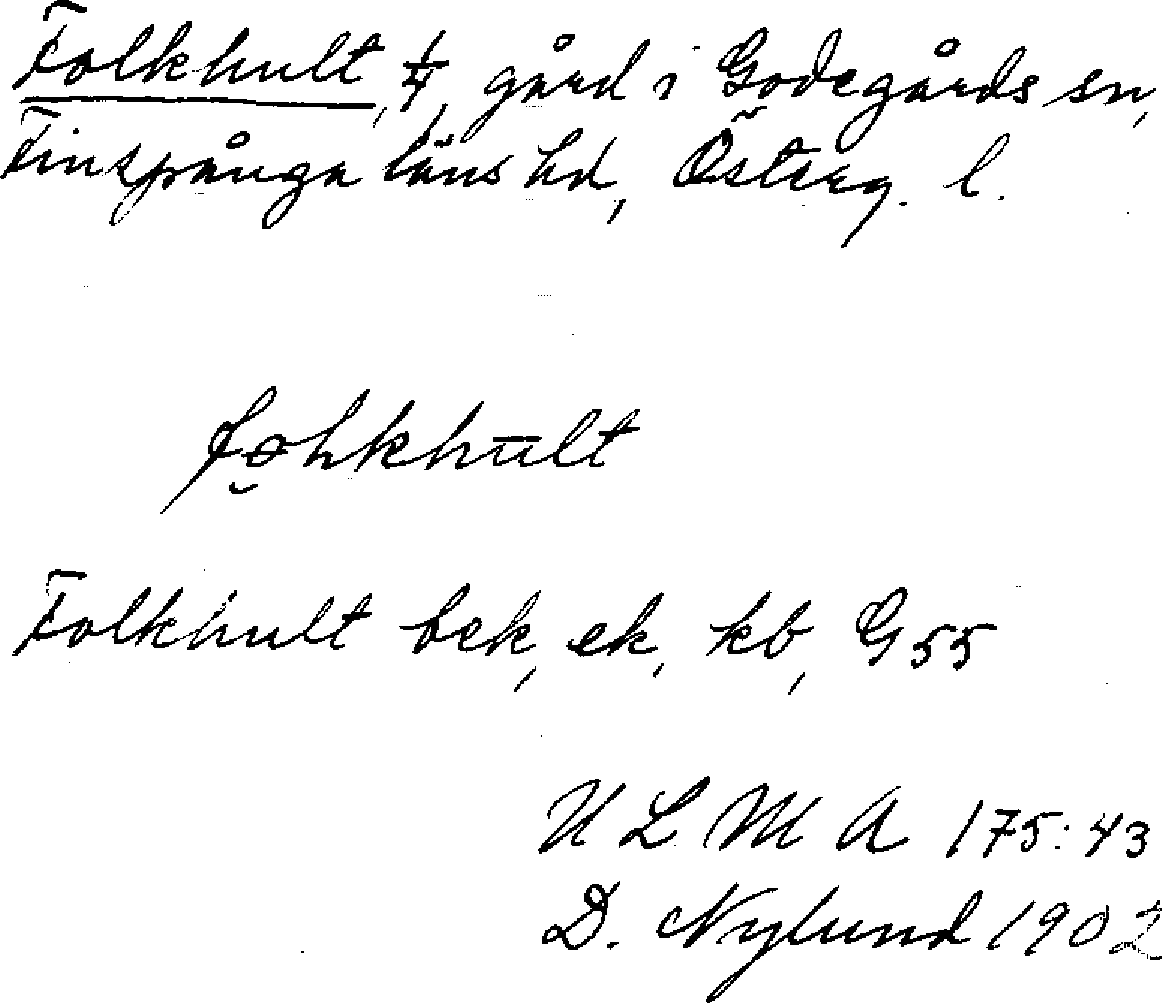 Folkhult, 1/4, gård i Godegårds sn,
Finspånga läns hd, Österg. l.
Folkhult bek, ek, kb, G55
U L M A 175:43
D. Nylund 1902